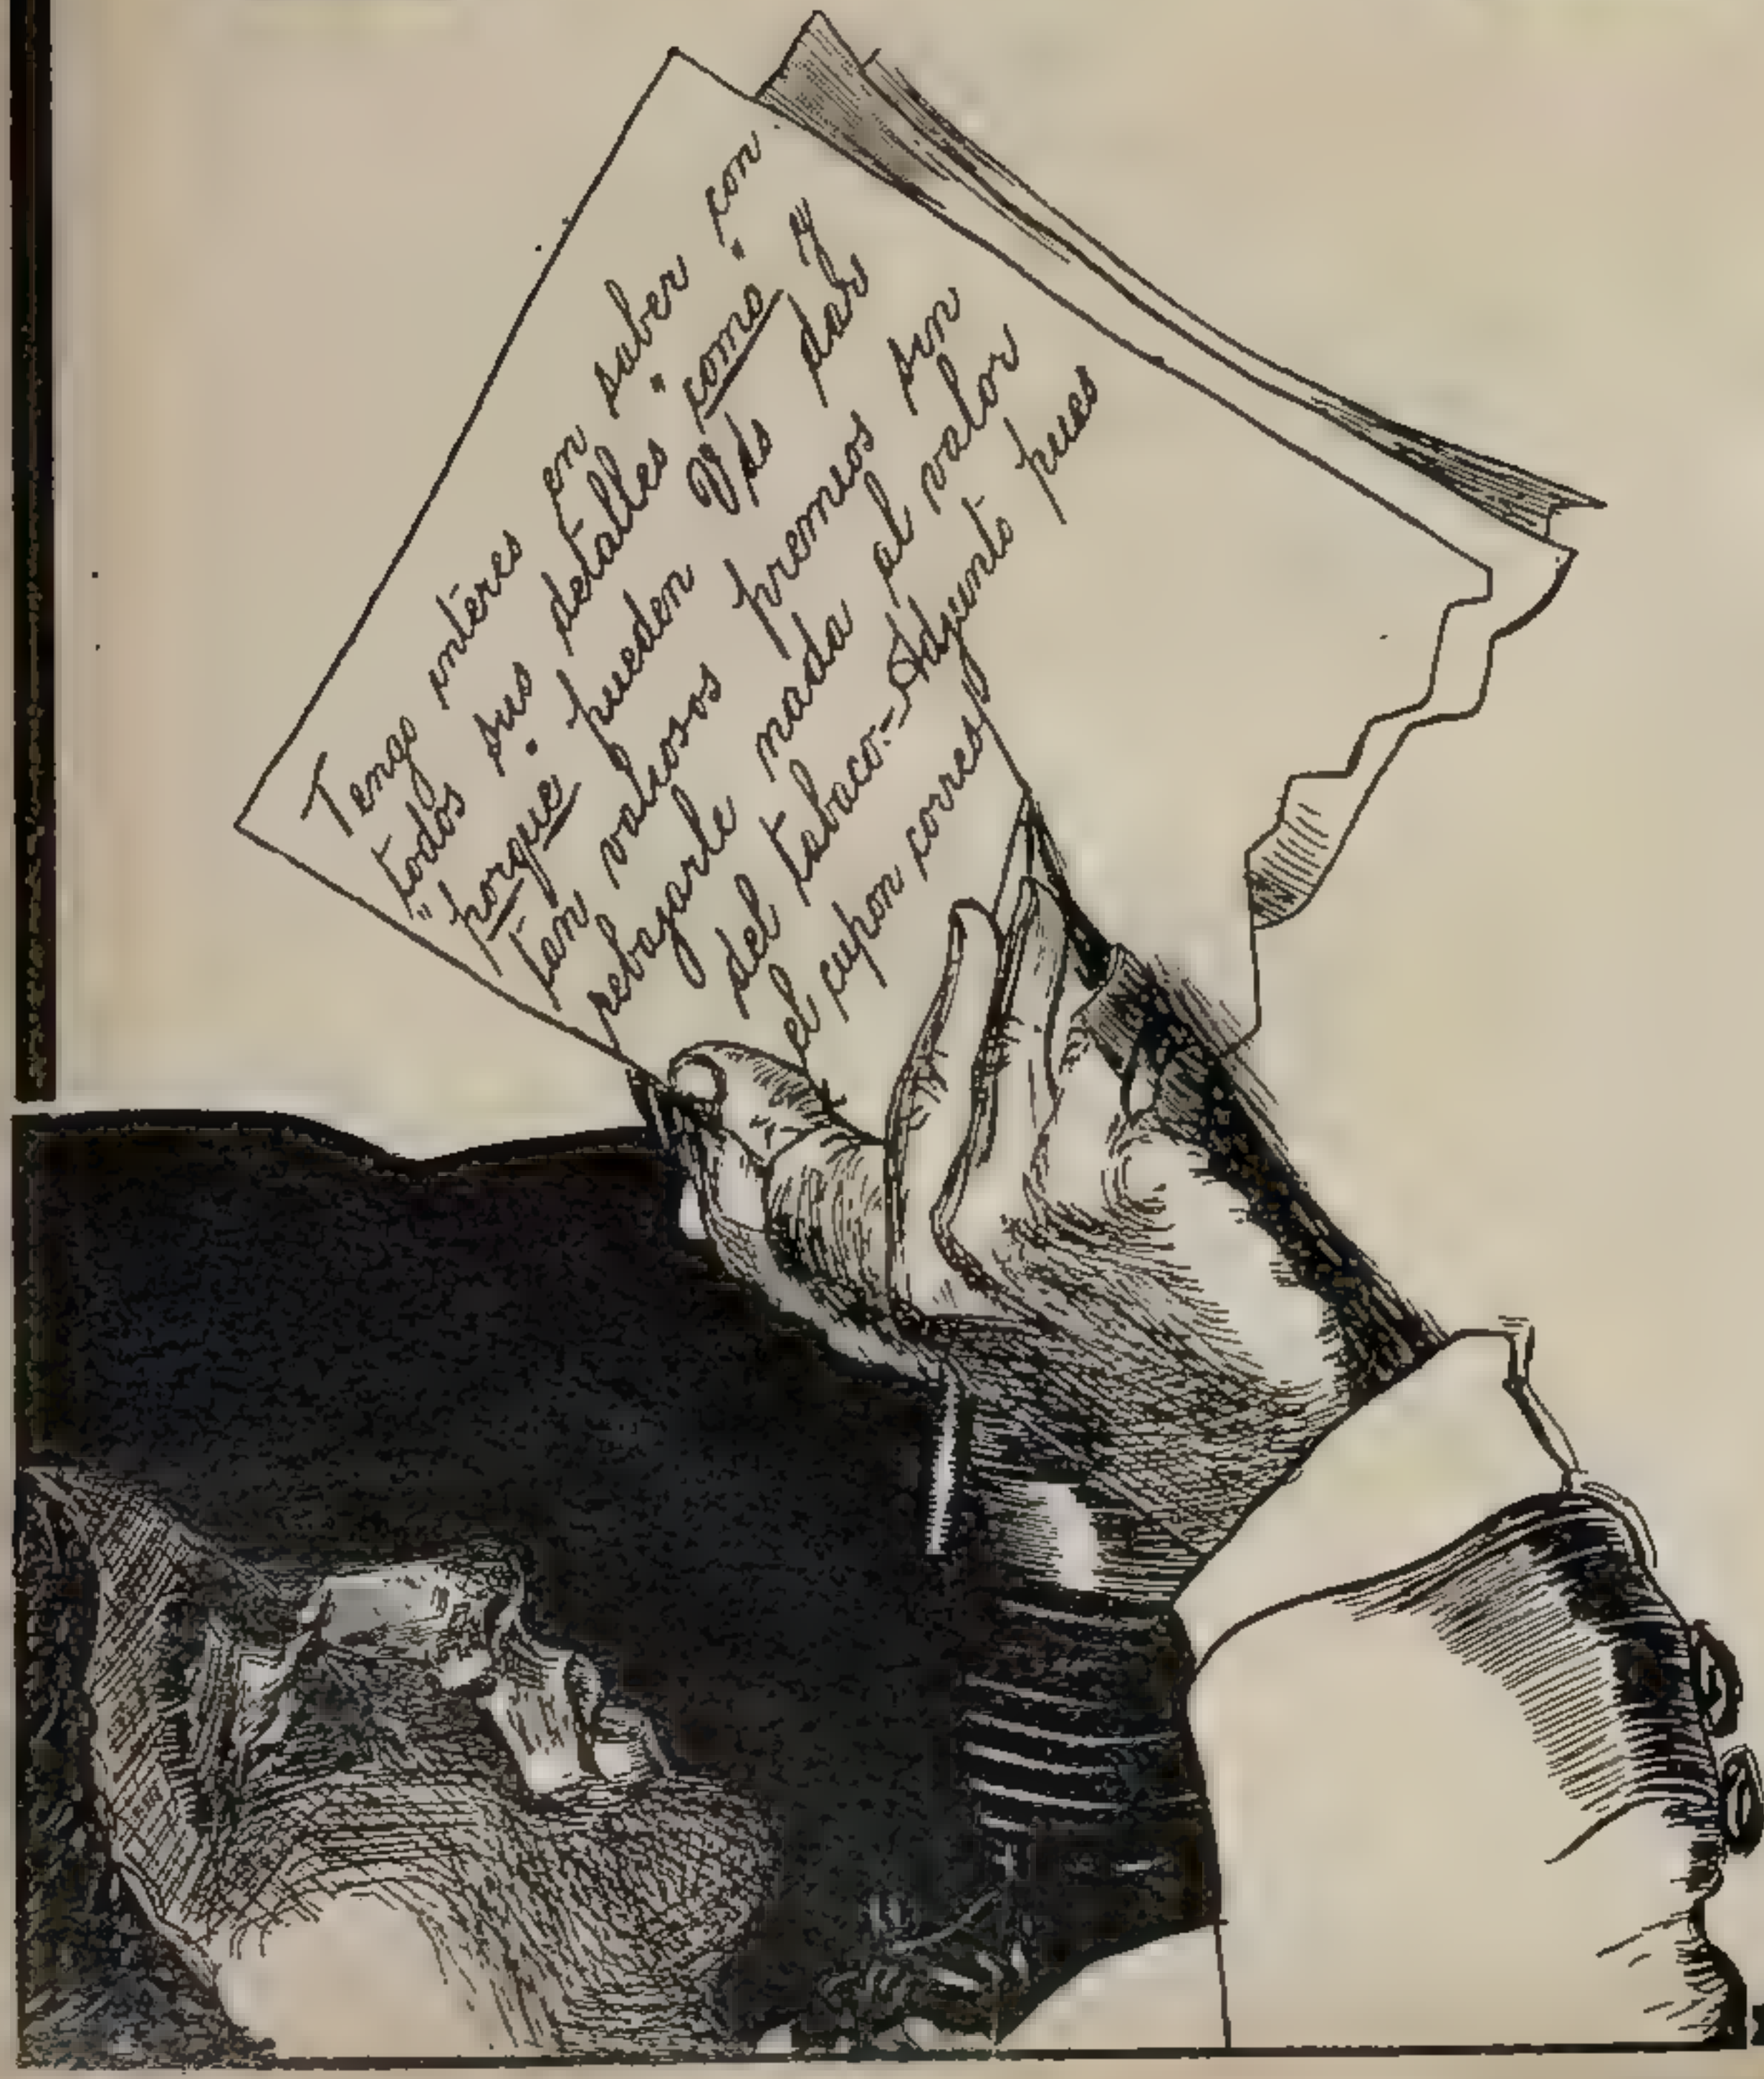 Tengo intéres en saber con
todos sus detalles "como" y
"porque" pueden Vds dar
tan valiosos premios sin
rebajarle nada al valor
del tabaco.- Adjunto pues
el cupon corres